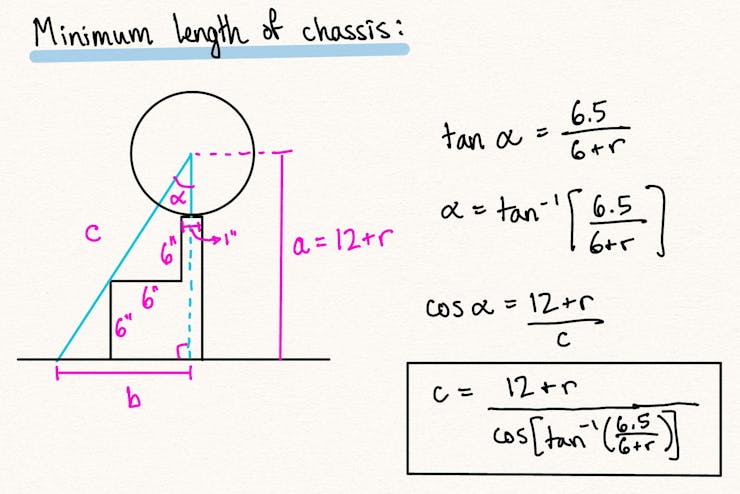 Minimum length of chassis:
α
c
6"
1"
a = 12+r
6"
6"
b
tan α = 6.5/6+r
α = tan⁻¹[6.5/6+r]
cos α = 12+r/c
c = 12+r/cos[tan⁻¹(6.5/6+r)]